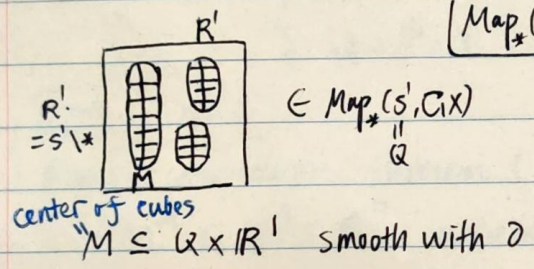 Map_* (
R'
R'
= S'\*
∈ Map_* (S', C_1X)
"
Q
M
center of cubes
"M ⊆ Q × R' smooth with ∂